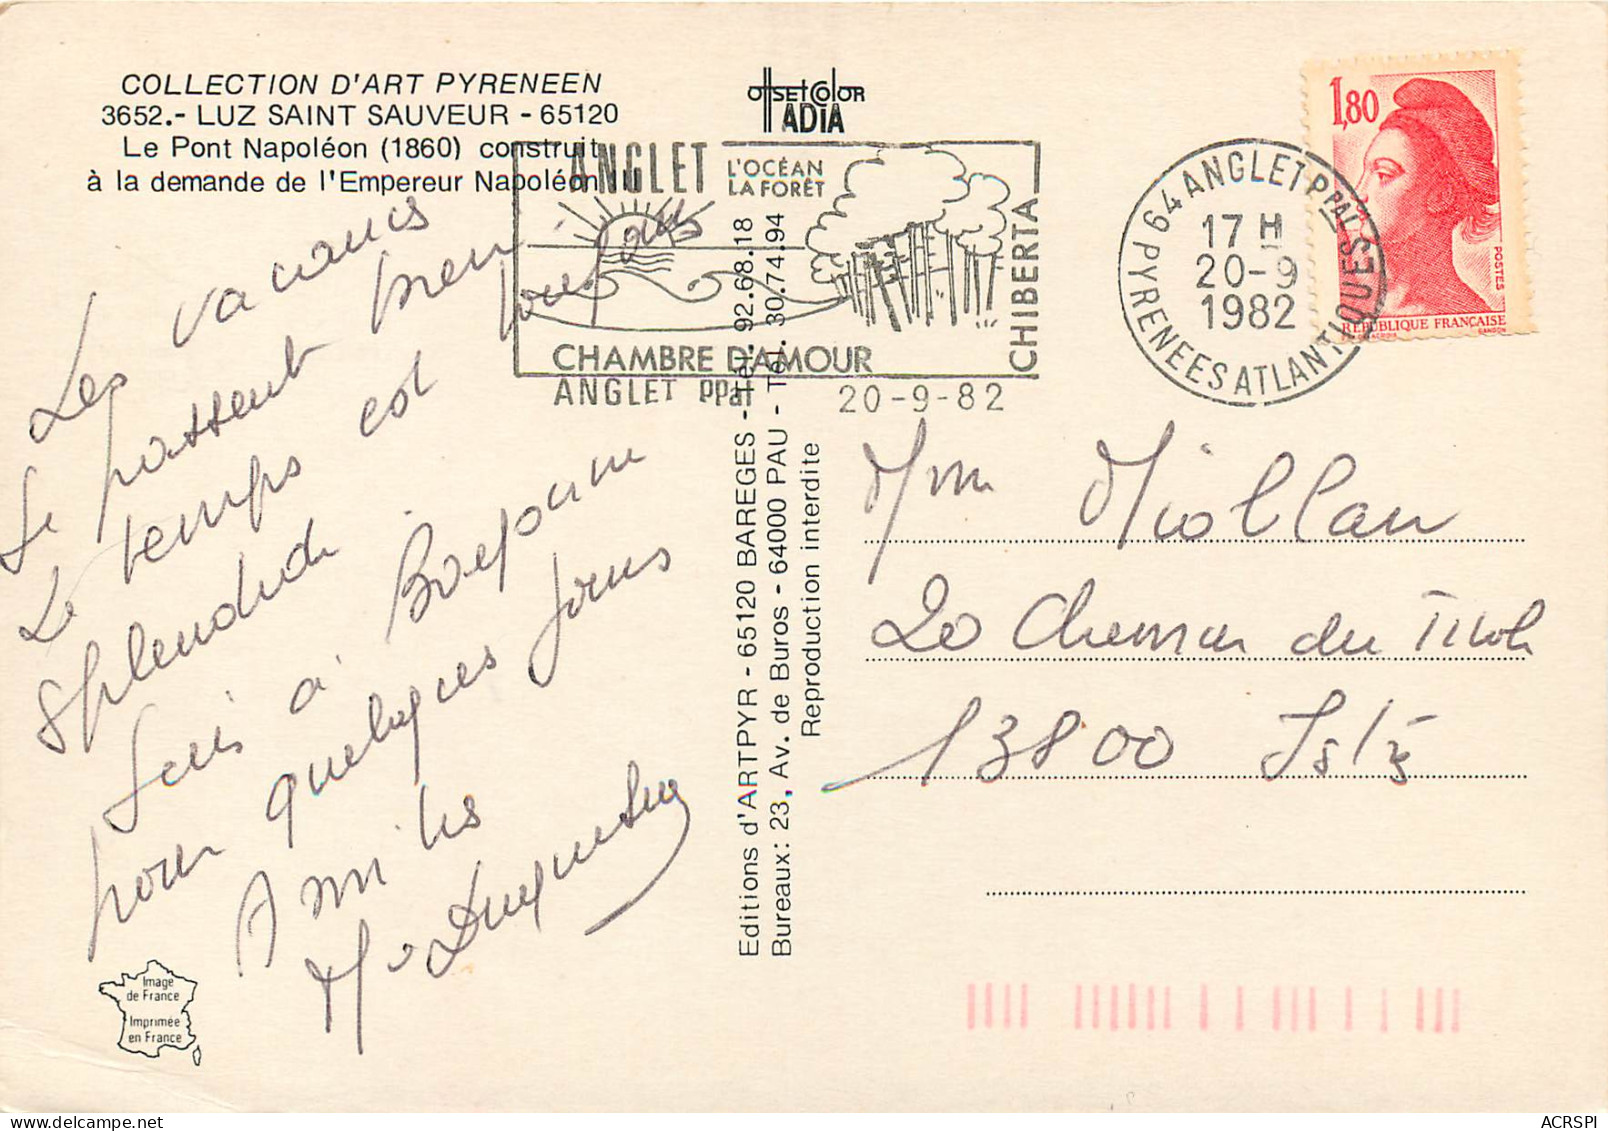 COLLECTION D'ART PYRENEEN
3652.- LUZ SAINT SAUVEUR - 65120
Le Pont Napoléon (1860) construit
à la demande de l'Empereur Napoléon III
offset color
ADIA
ANGLET
L'OCÉAN
LA FORÊT
CHIBERTA
CHAMBRE D'AMOUR
ANGLET PPal 20-9-82
64 ANGLET PPAL
17 H
20-9
1982
PYRENEES ATLANTIQUES
1,80
POSTES
REPUBLIQUE FRANÇAISE
GANDON
Les vacances
se passent bien toujours
Le temps est
splendide
suis à
pour quelques jours
Amitiés
Editions d'ARTPYR - 65120 BAREGES - Tél. 92.68.18
Bureaux: 23, Av. de Buros - 64000 PAU - Tél. 30.74.94
Reproduction interdite
Mme Miollan
20 Chemin du Tivoli
13800 Istres
Image
de France
Imprimée
en France
ACRSPI